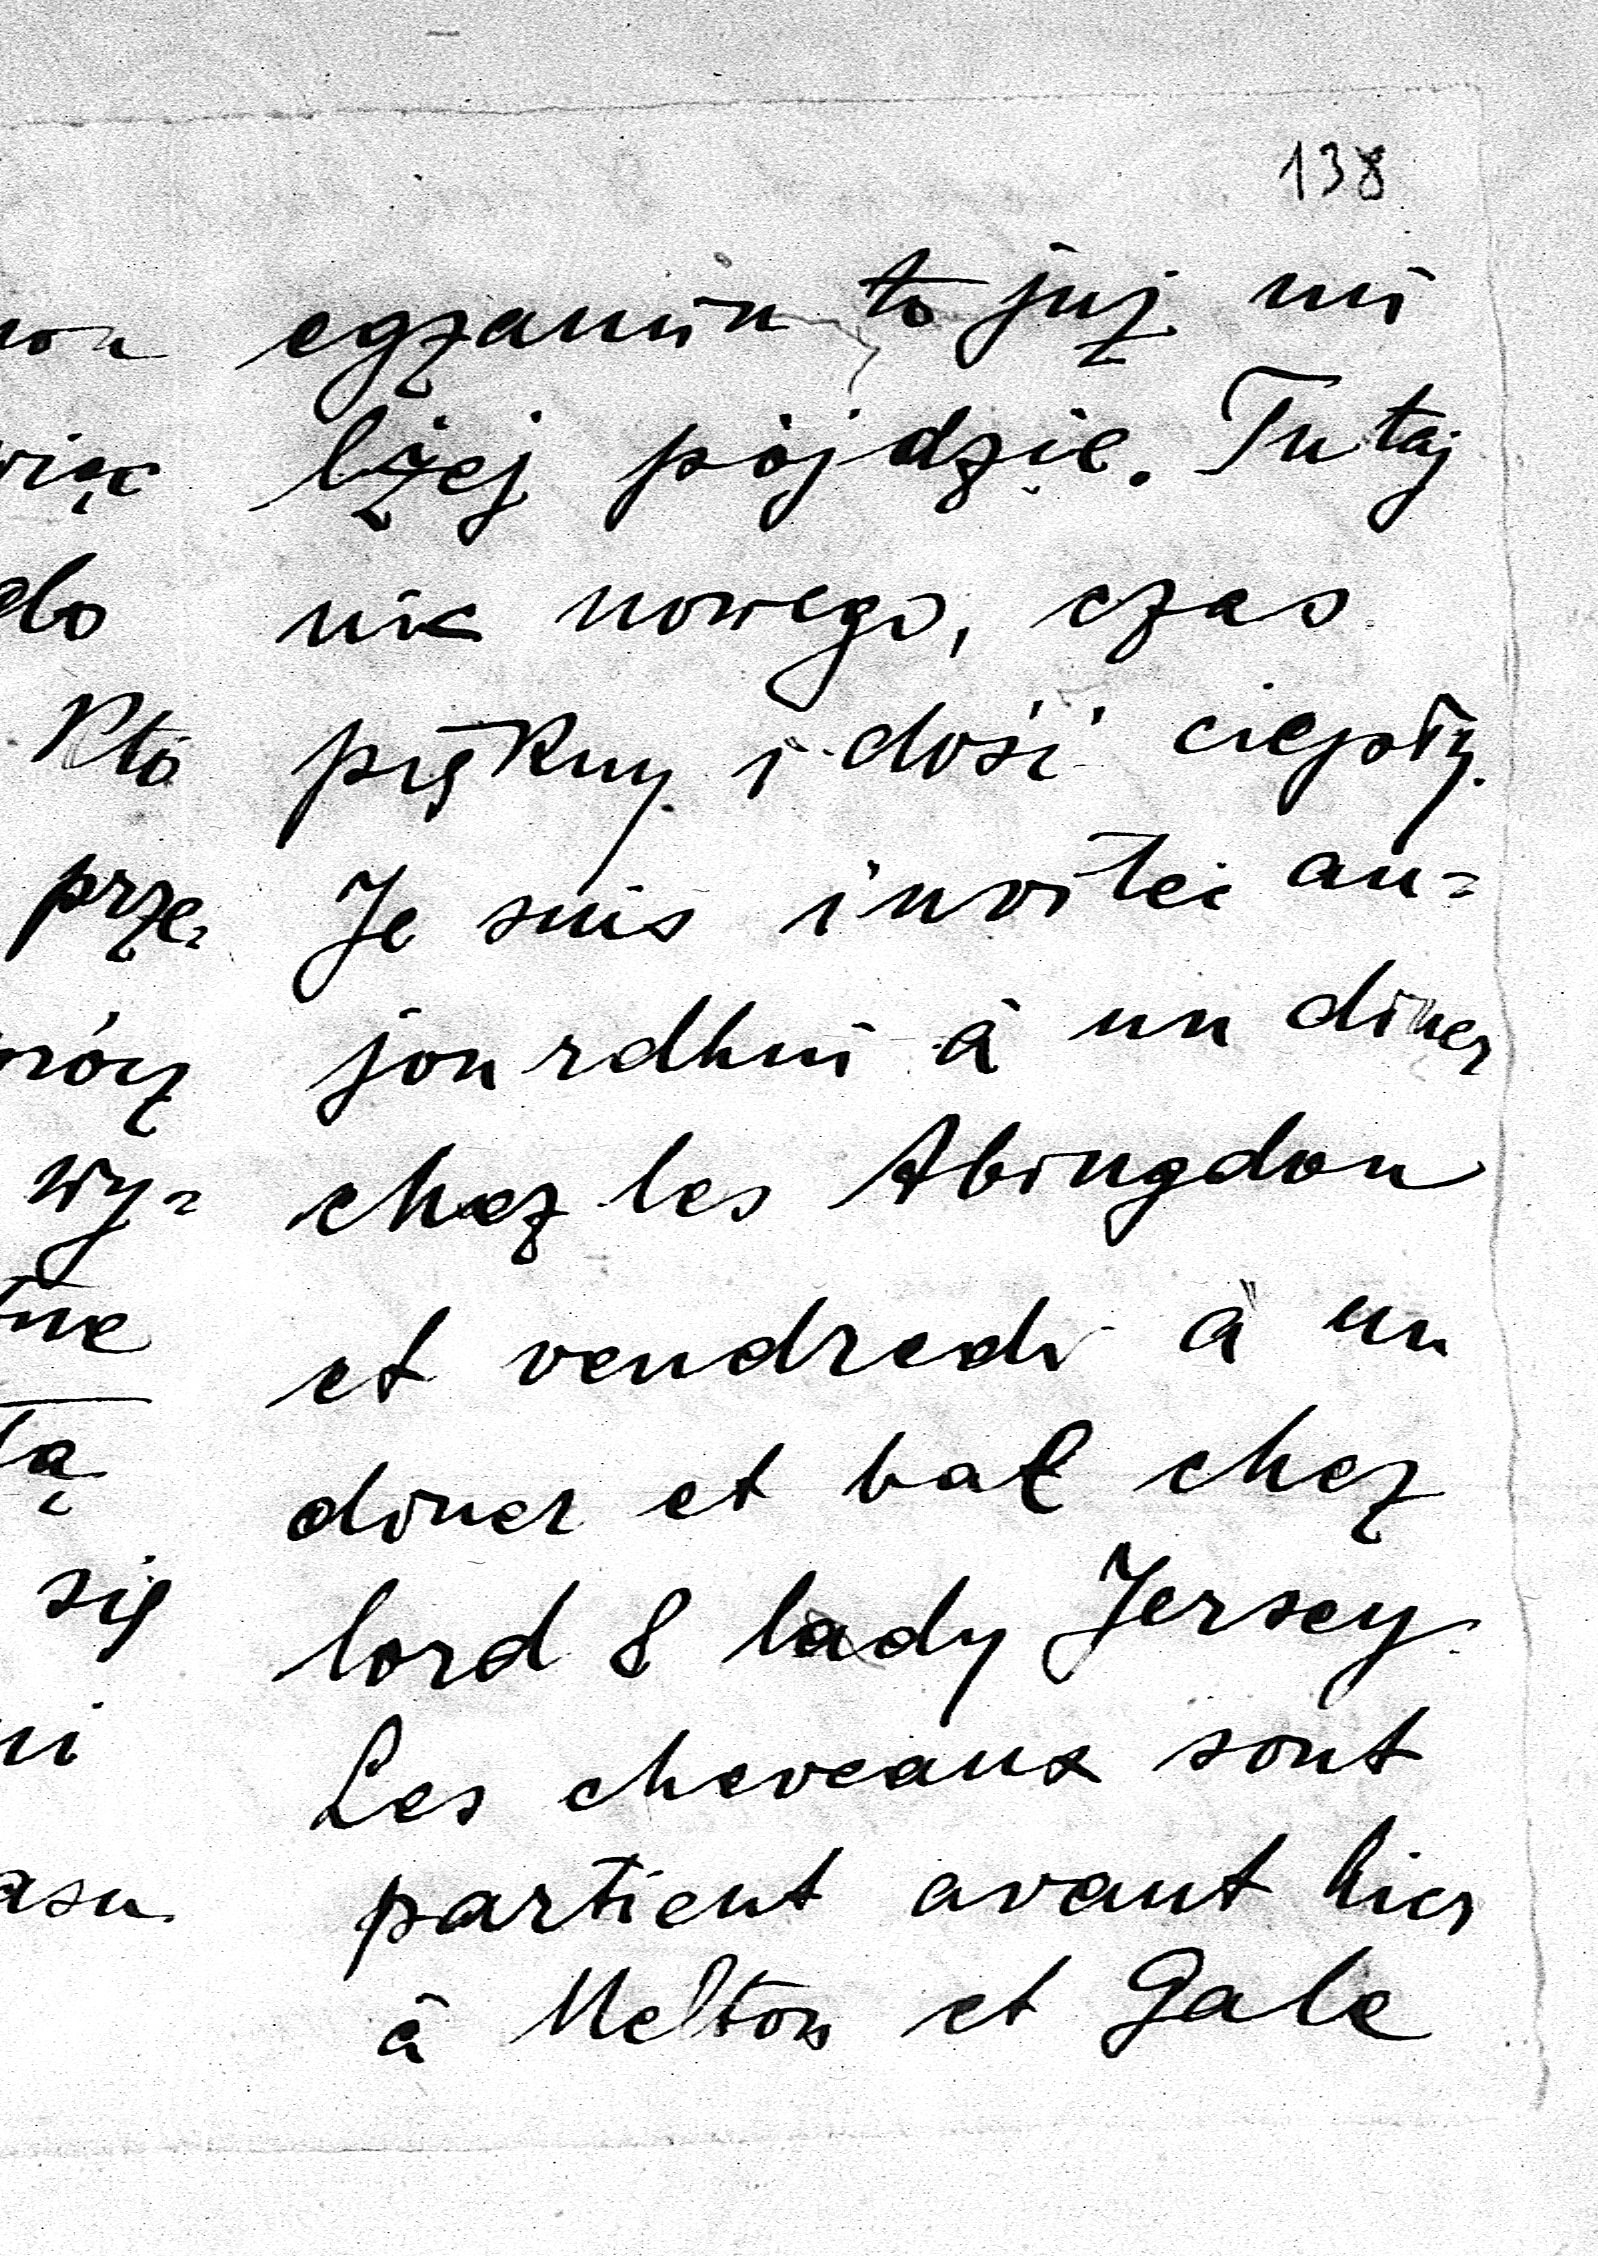 138
egzamin to już mi
lżej pójdzie. Tutaj
nic nowego, czas
piękny i dość ciepły.
Je suis invitei au=
jourdhui à un diner
chez les Abingdon
et vendredi à un
diner et bal chez
lord & lady Jersey.
Les cheveaux sont
partient avant hier
à Melton et Gale
więc
do
Kto
prze=
prócz
wy=
tą
się